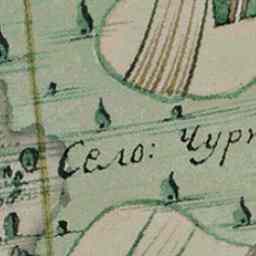 Село: Чурп